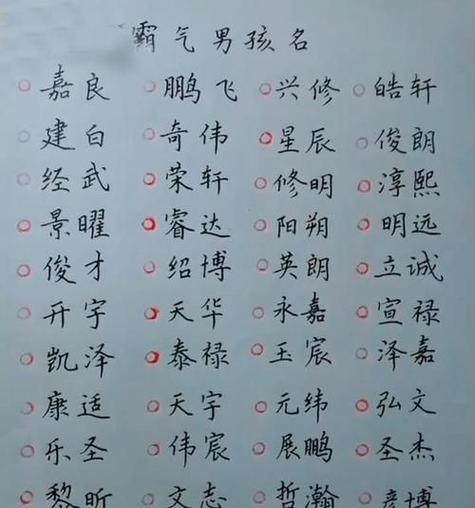 霸气男孩名
嘉良 鹏飞 兴修 皓轩
建白 奇伟 星辰 俊朗
经武 荣轩 修明 淳熙
景曜 睿达 阳朔 明远
俊才 绍博 英朗 立诚
开宇 天华 永嘉 宣禄
凯泽 泰禄 玉宸 泽嘉
康适 天宇 元纬 弘文
乐圣 伟宸 展鹏 圣杰
黎昕 文志 哲瀚 彦博